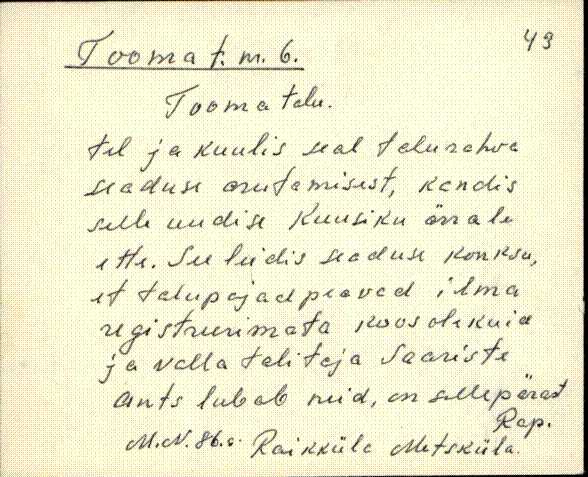 49
Tooma t. m. 6.
Tooma talu.
tel ja kuulis seal talurahva
seaduse arutamisest, kandis
selle uudise Kuusiku örrale
ette. See leidis seaduse konksu,
et talupojad peavad ilma
registreerimata koosolekuid
ja valla talitaja Saariste
Ants lubab neid, on sellepärast
Rap.
M.N. 86.a. Raikküla Metsküla.